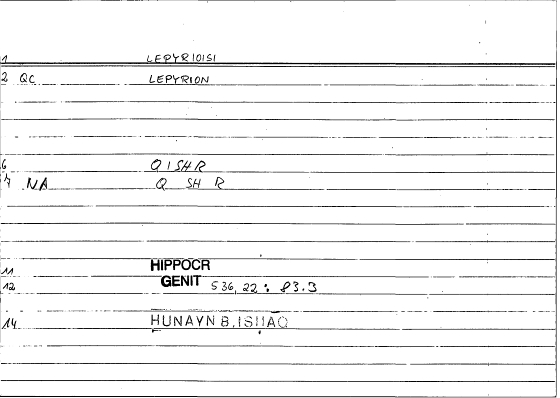 1 LEPYRIOISI
2 QC LEPYRION
6 QISHR
7 NA Q SH R
11 HIPPOCR
12 GENIT 536, 22 : 83.3
14 HUNAYN B.ISHAQ